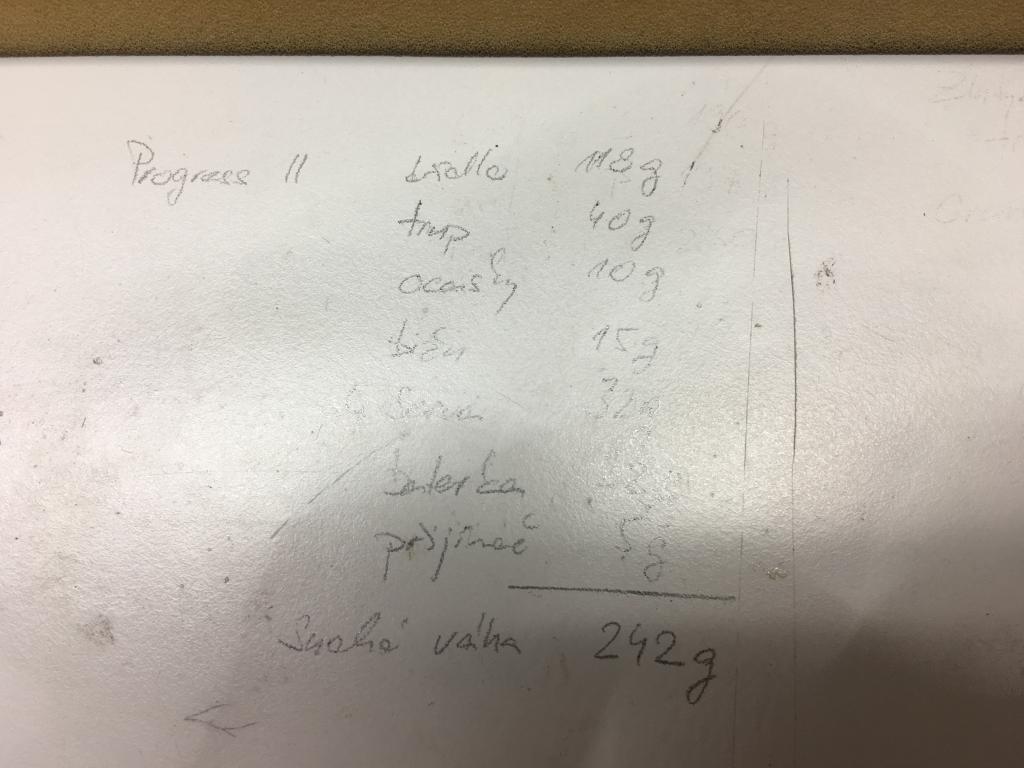 Progress II křidla 118g
trup 40g
ocasky 10g
15g
4 Serva 32g
baterka
přijímač 5g
Suchá váha 242g